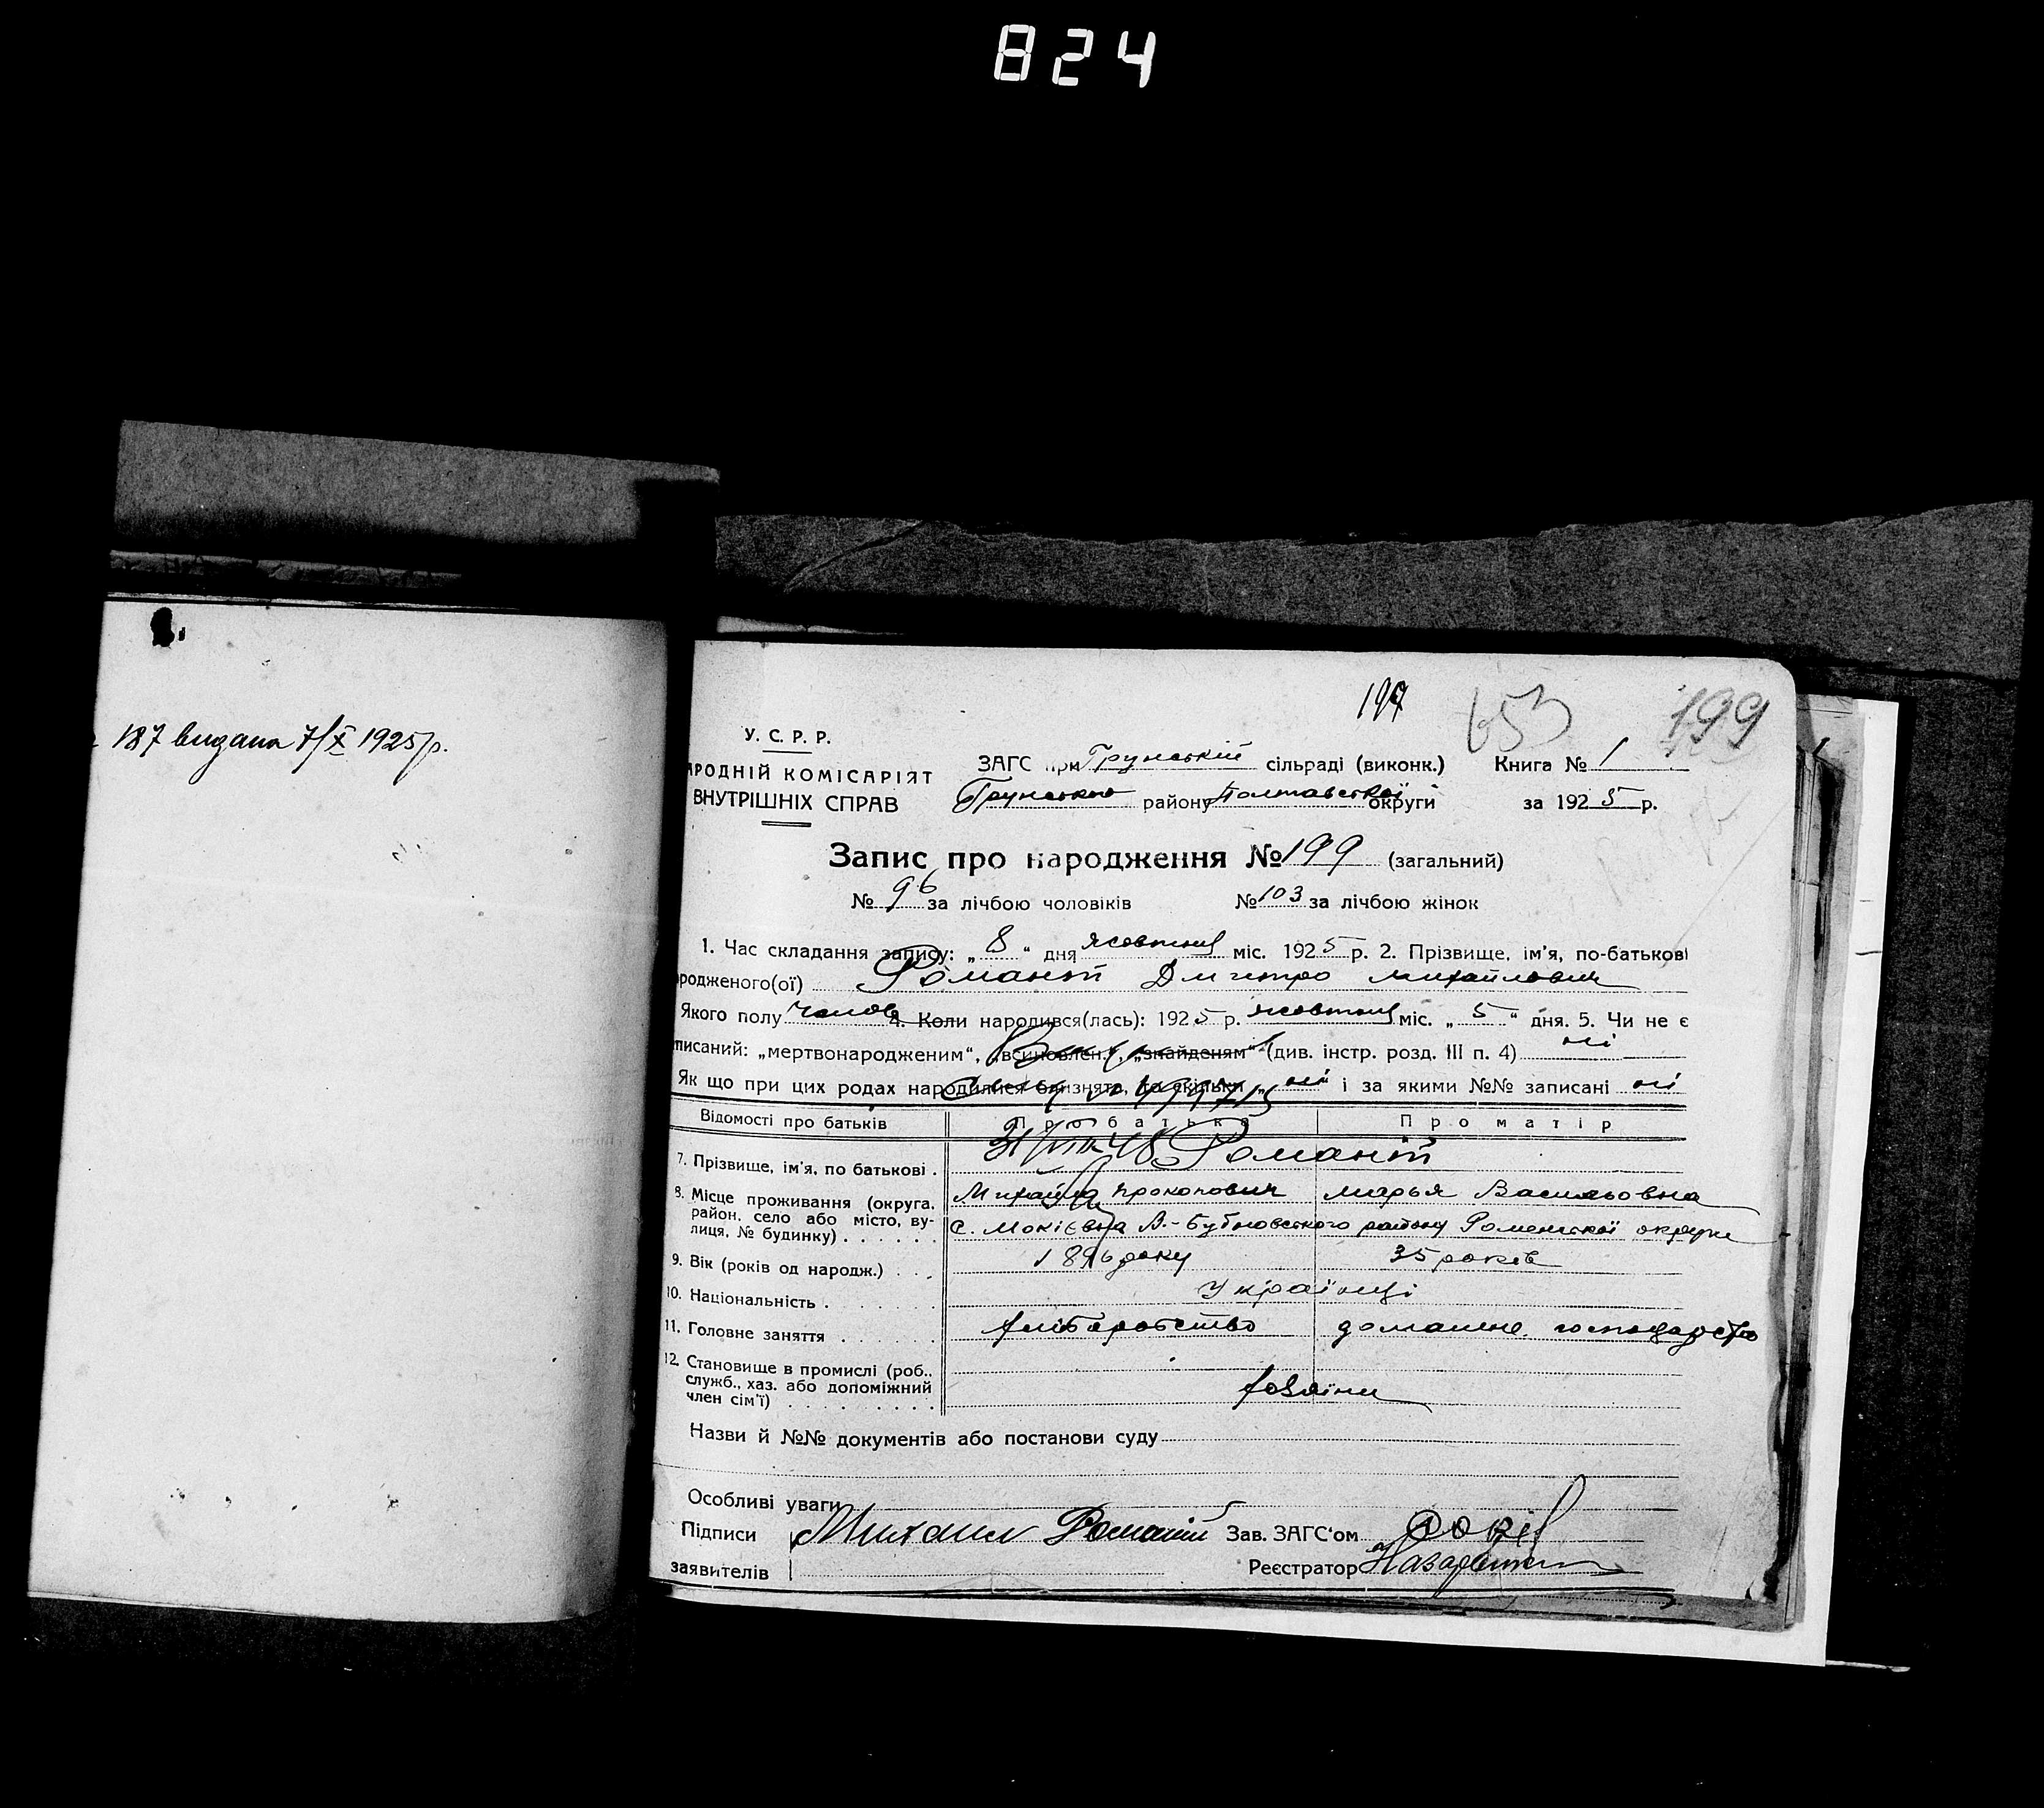 824
187 видана 7/X 1925 р.
199 653 199
У. С. Р. Р.
АРОДНІЙ КОМІСАРІЯТ
ВНУТРІШНІХ СПРАВ
ЗАГС при Грунській сільраді (виконк.) Книга № 1
Грунського району Полтавської округи за 1925 р.
Запис про народження № 199 (загальний)
№ 96 за лічбою чоловіків № 103 за лічбою жінок
1. Час складання запису: „8“ дня жовтня міс. 1925 р. 2. Прізвище, ім'я, по-батькові
родженого(ої) Романій Дмитро Михайлович
Якого полу чолов 4. Коли народився(лась): 1925 р. жовтня міс. „5“ дня. 5. Чи не є
писаний: „мертвонародженим“, „всиновлен.“, „знайденям“ (див. інстр. розд. III п. 4) ні
Як що при цих родах народилися близнята, то скільки „ні“ і за якими №№ записані ні
Відомості про батьків Про батька Про матір
7. Прізвище, ім'я, по батькові . 31/VIII-48 Романій
Михайло Прокопович Марья Васильовна
8. Місце проживання (округа, район, село або місто, ву-
лиця, № будинку) . . . . . . с. Мокієвка В.-Бубновського району Роменської округи
9. Вік (років од народж.) . . . 1896 року 35 років
10. Національність . . . . . . . Українці
11. Головне заняття . . . . . . хліборобство домашнє господарство
12. Становище в промислі (роб.,
служб., хаз. або допоміжний
член сім'ї) . . . . . . . . . хазяїни
Назви й №№ документів або постанови суду
Особливі уваги
Підписи Михаил Романій Зав. ЗАГС'ом
заявителів Реєстратор